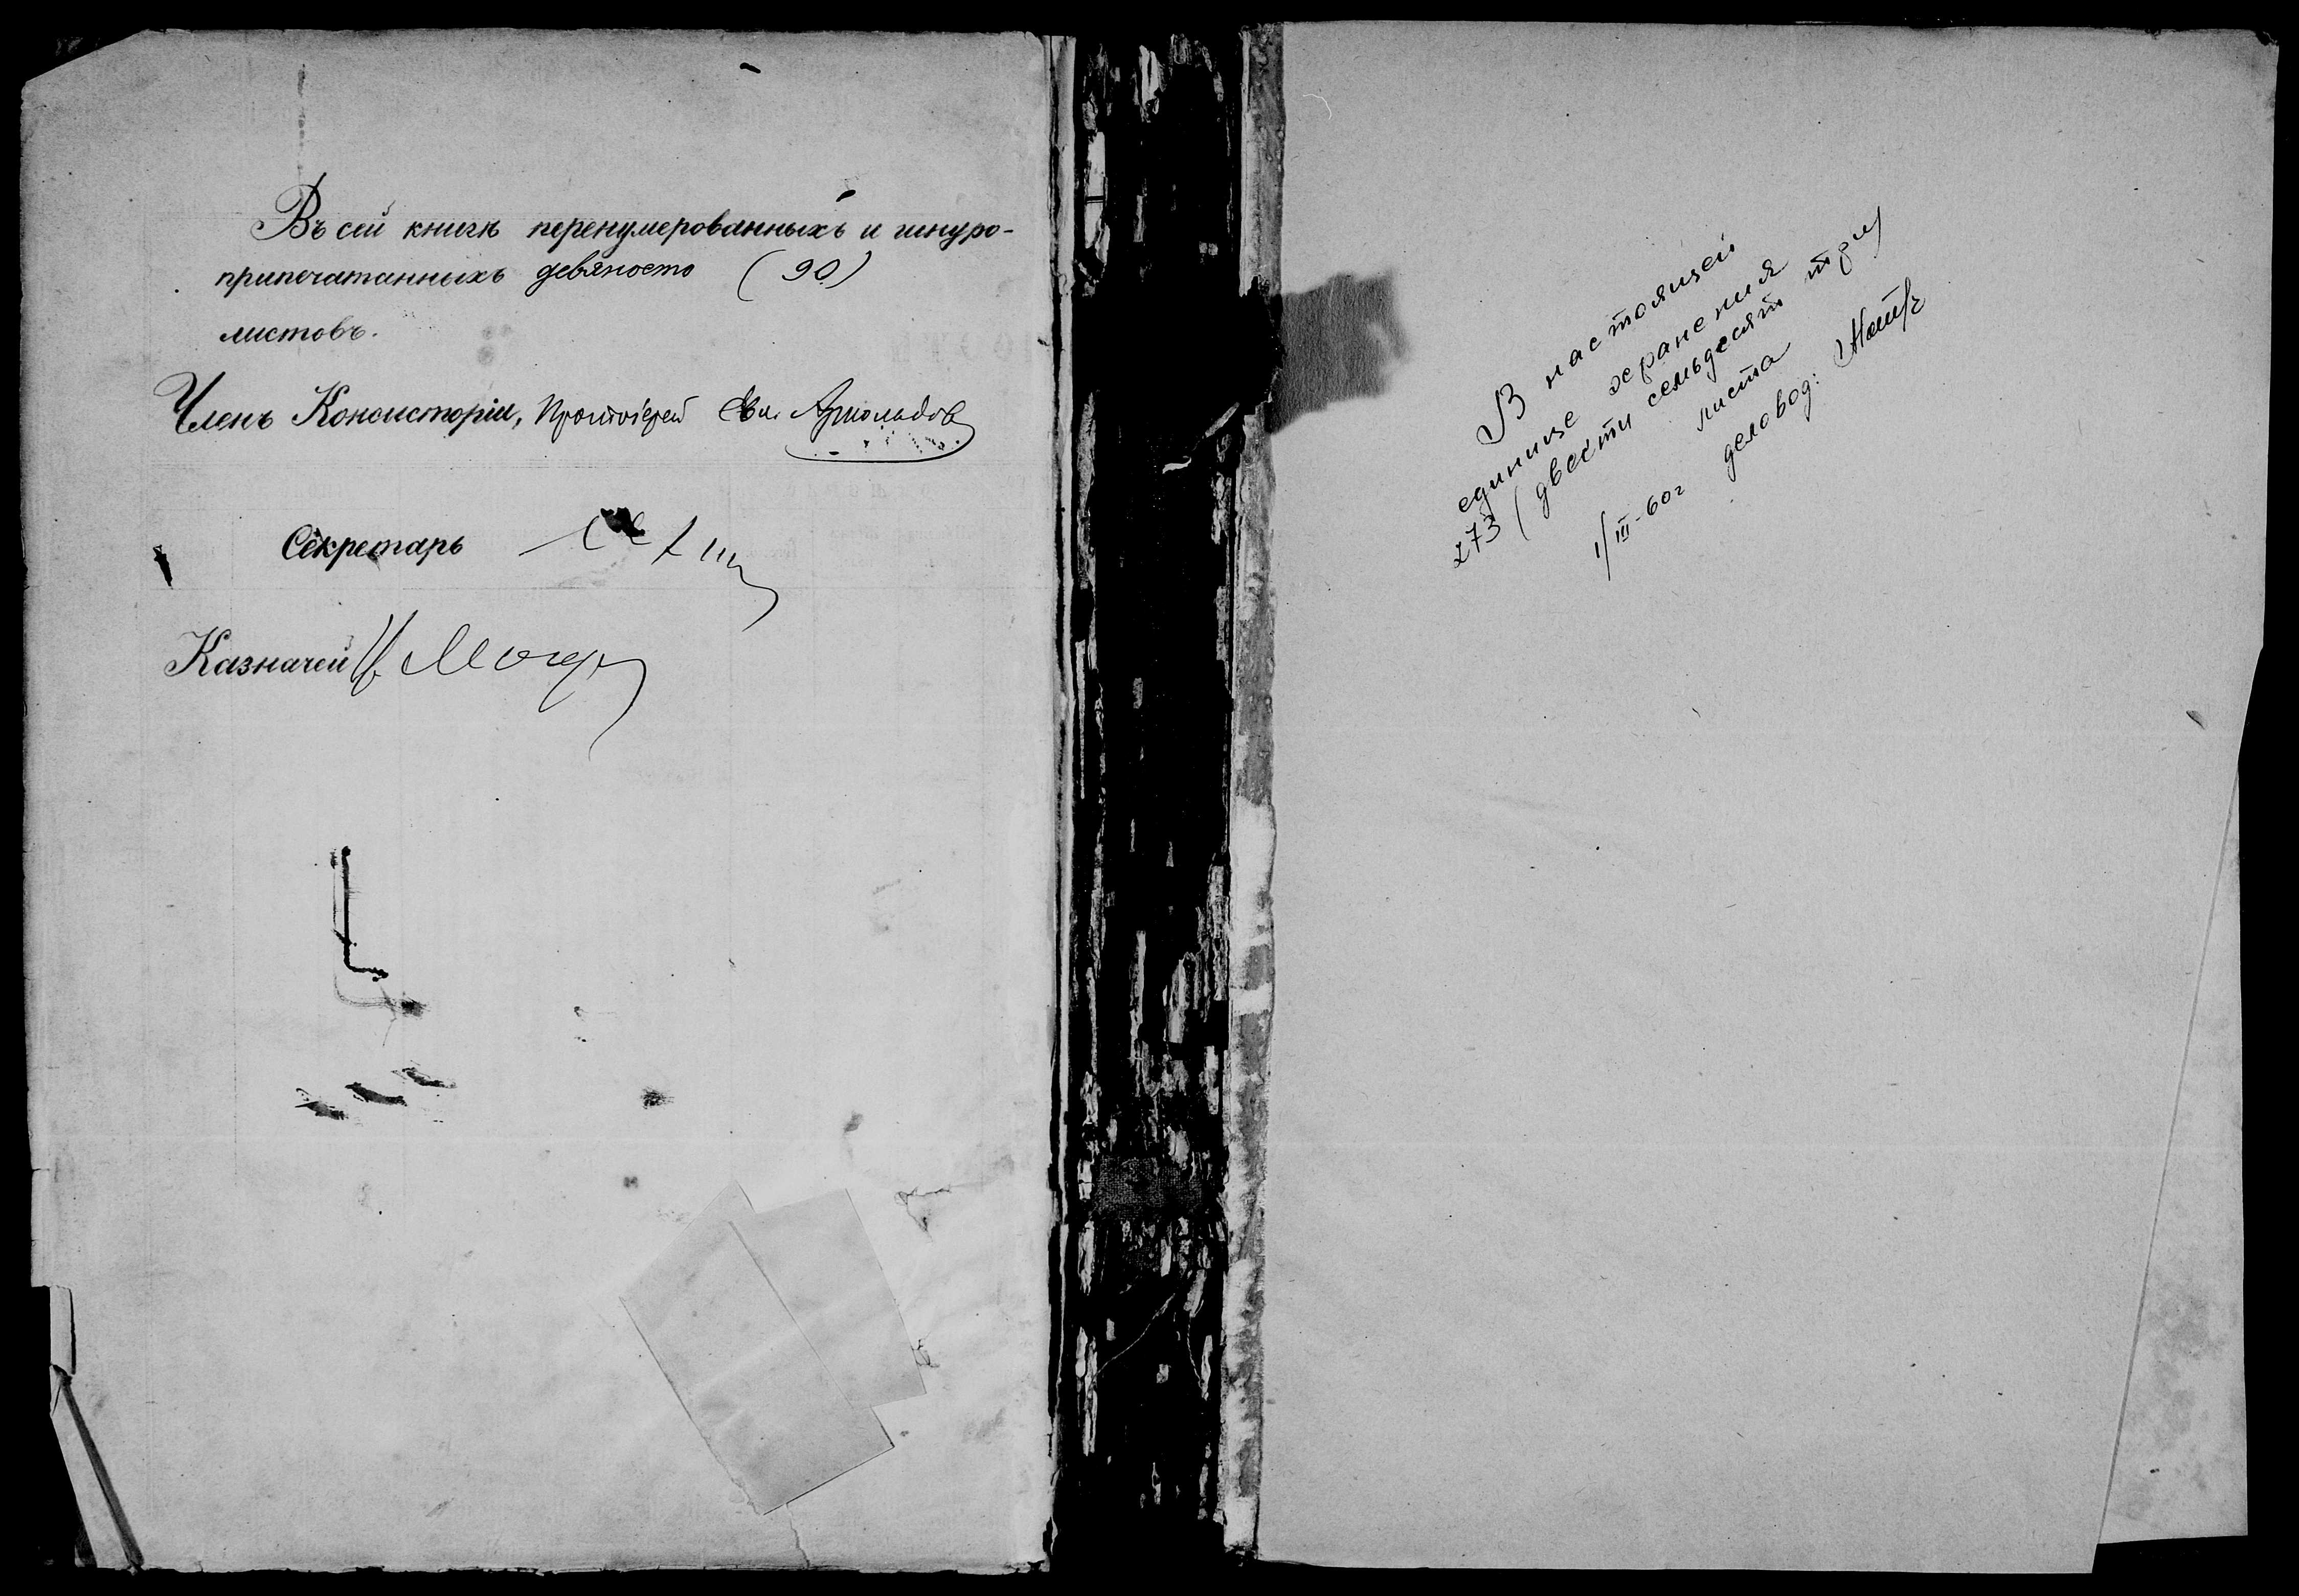 Въ сей книгѣ перенумерованныхъ и шнуро-
припечатанныхъ девяносто (90)
листовъ.
Членъ Консисторіи, Протоіерей
Секретарь
Казначей
В настоящей
единице хранения
273 (двести семьдесят три)
листа
1/III-60г деловод: